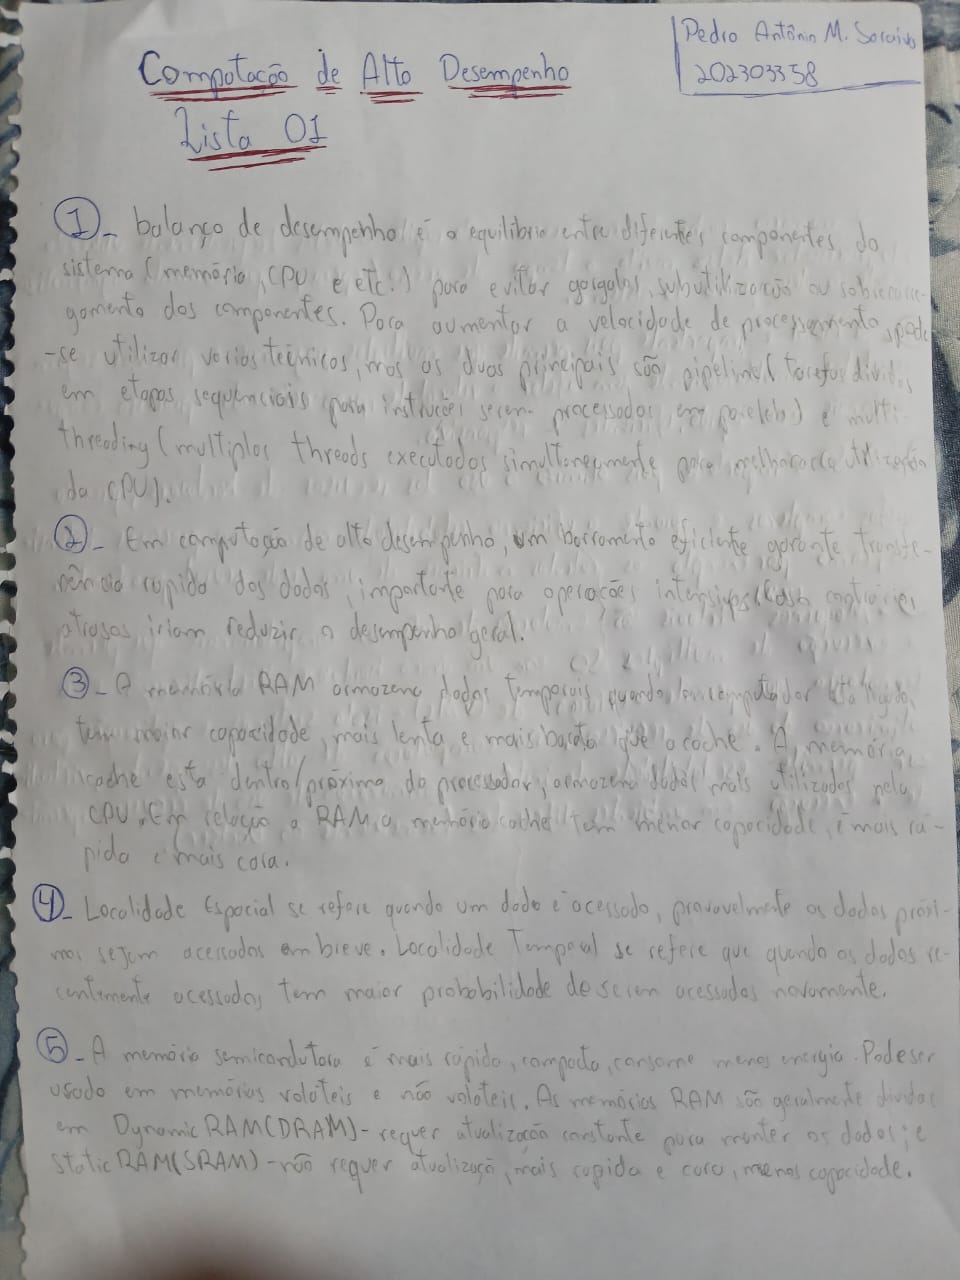 Pedro Antônio M. Saraiva
202303358
Computação de Alto Desempenho
Lista 01
1- balanço de desempenho é o equilíbrio entre diferentes componentes do
sistema (memória, CPU e etc.) para evitar gargalos, subutilização ou sobrecarre-
gamento dos componentes. Para aumentar a velocidade de processamento, pode
-se utilizar varias técnicas, mas as duas principais são pipeline (tarefas dividas
em etapas sequenciais para instruções serem processadas em paralelo) e multi-
threading (multiplas threads executados simultaneamente para melhorar a utilização
da CPU).
2- Em computação de alto desempenho, um barramento eficiente garante transfe-
rência rapida dos dados, importante para operações intensivas. Caso contrário,
atrasos iriam reduzir o desempenho geral.
3- A memória RAM armazena dados temporais quando computador está ligado,
tem maior capacidade, mais lenta e mais barata que a cache. A memória
cache esta dentro/próxima do processador, armazena dados mais utilizados pela
CPU. Em relação a RAM, a memória cache tem menor capacidade, é mais rá-
pida e mais cara.
4- Localidade Espacial se refere quando um dado é acessado, provavelmente os dados próxi-
mos sejam acessados em breve. Localidade Temporal se refere que quando os dados re-
centemente acessados, tem maior probabilidade de serem acessados novamente.
5- A memória semicondutora é mais rápida, compacta, consome menos energia. Pode ser
usado em memórias voláteis e não voláteis. As memórias RAM são geralmente dividas
em Dynamic RAM(DRAM)- requer atualização constante para manter os dados; e
Static RAM(SRAM)-não requer atualizaçã, mais rapida e cara, menos capacidade.